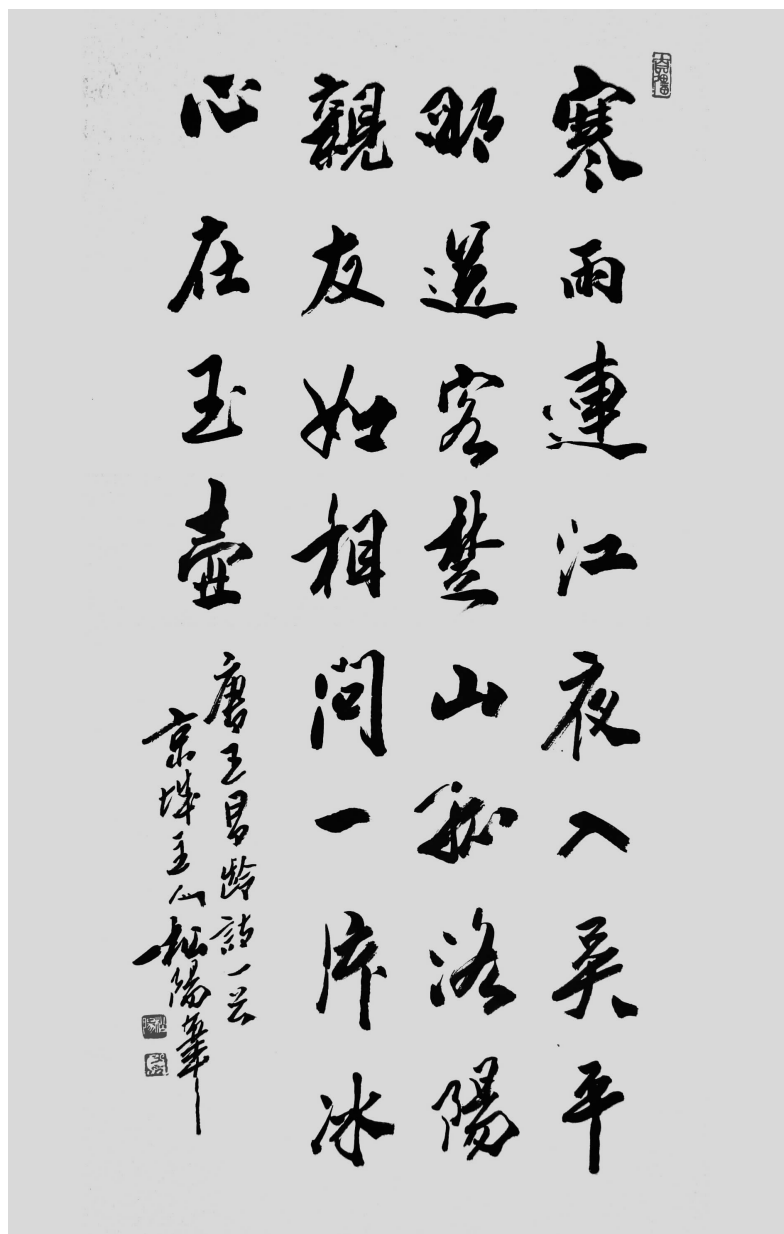 寒雨連江夜入吳平
明送客楚山孤洛陽
親友如相問一片冰
心在玉壺
唐王昌齡詩一首
京城主人松陽筆